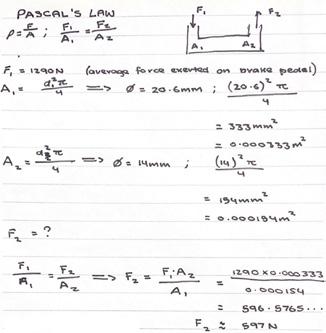 PASCAL'S LAW
P = F/A ; F₁/A₁ = F₂/A₂
F₁ F₂
A₁ A₂
F₁ = 1290N (average force exerted on brake pedal)
A₁ = d₁²π/4 ⟹ Ø = 20.6mm ; (20.6)² π/4
= 333mm²
= 0.000333m²
A₂ = d₂²π/4 ⟹ Ø = 14mm ; (14)² π/4
= 154mm²
= 0.000154m²
F₂ = ?
F₁/A₁ = F₂/A₂ ⟹ F₂ = F₁·A₂/A₁ = 1290 x 0.000333/0.000154
= 596.5765...
F₂ ≈ 597N